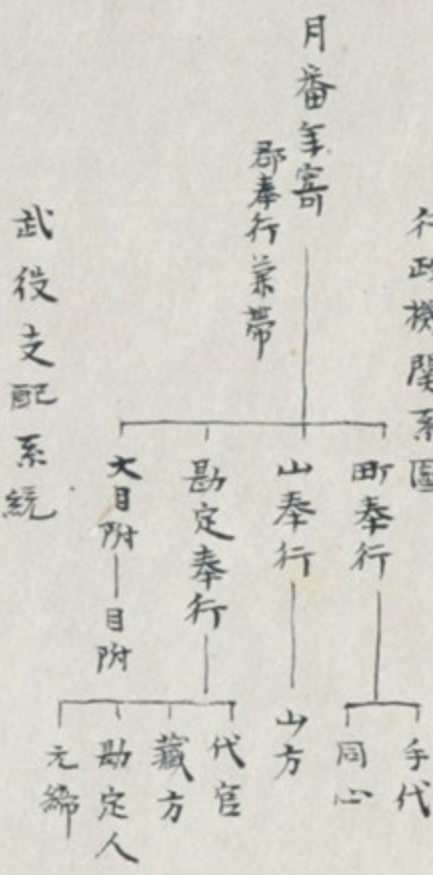 行政機関系圖
月番年寄
郡奉行兼帯
町奉行
手代
同心
山奉行
山方
勘定奉行
代官
藏方
勘定人
元締
大目附
目附
武役支配系統